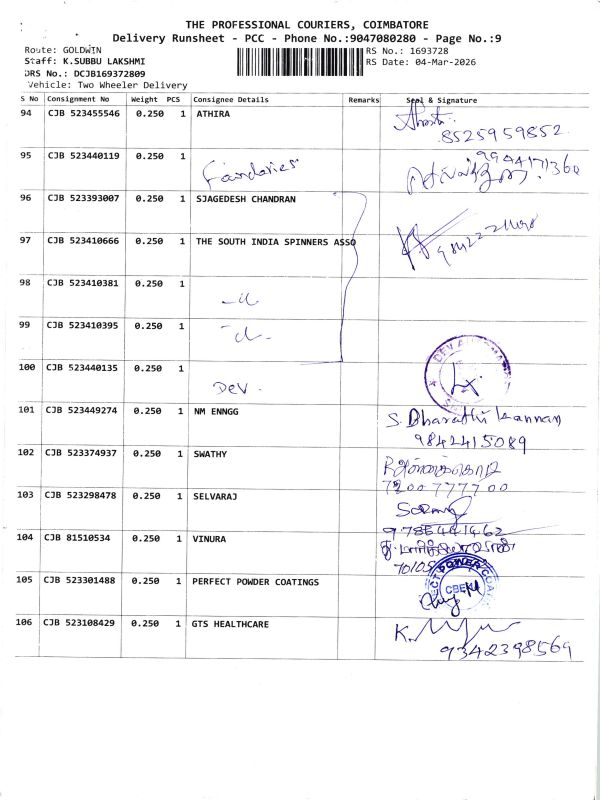 THE PROFESSIONAL COURIERS, COIMBATORE
Delivery Runsheet - PCC - Phone No.:9047080280 - Page No.:9
Route: GOLDWIN
Staff: K.SUBBU LAKSHMI
DRS No.: DCJB169372809
Vehicle: Two Wheeler Delivery
RS No.: 1693728
RS Date: 04-Mar-2026
S No Consignment No Weight PCS Consignee Details Remarks Seal & Signature
94 CJB 523455546 0.250 1 ATHIRA
8525959852
95 CJB 523440119 0.250 1
96 CJB 523393007 0.250 1 SJAGEDESH CHANDRAN
97 CJB 523410666 0.250 1 THE SOUTH INDIA SPINNERS ASSO
98 CJB 523410381 0.250 1
99 CJB 523410395 0.250 1
100 CJB 523440135 0.250 1
Dev.
101 CJB 523449274 0.250 1 NM ENNGG S. Bharathi Kannan
9842415089
102 CJB 523374937 0.250 1 SWATHY
7200777700
103 CJB 523298478 0.250 1 SELVARAJ
104 CJB 81510534 0.250 1 VINURA
105 CJB 523301488 0.250 1 PERFECT POWDER COATINGS
106 CJB 523108429 0.250 1 GTS HEALTHCARE
9342398569